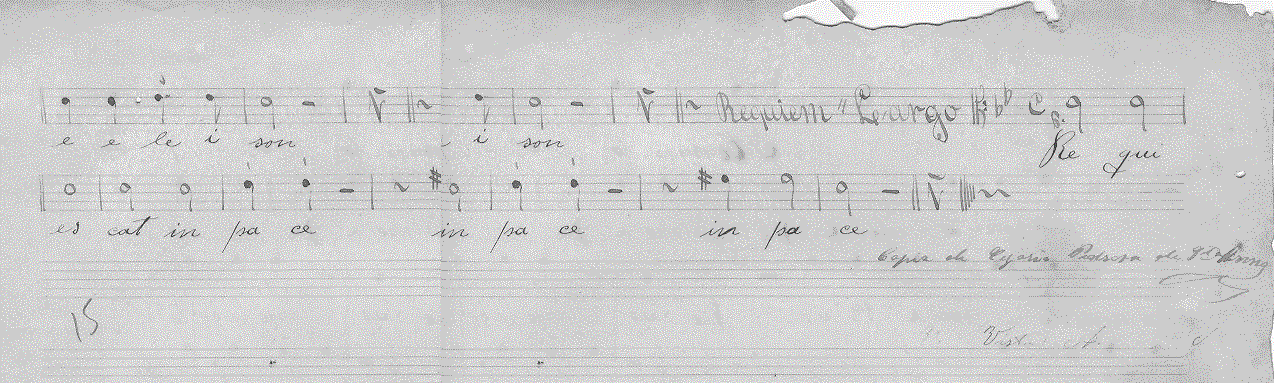 Requiem " Largo
e e le i son i son Re qui
es cat in pa ce in pa ce in pa ce
Copia de Pedrosa de
15